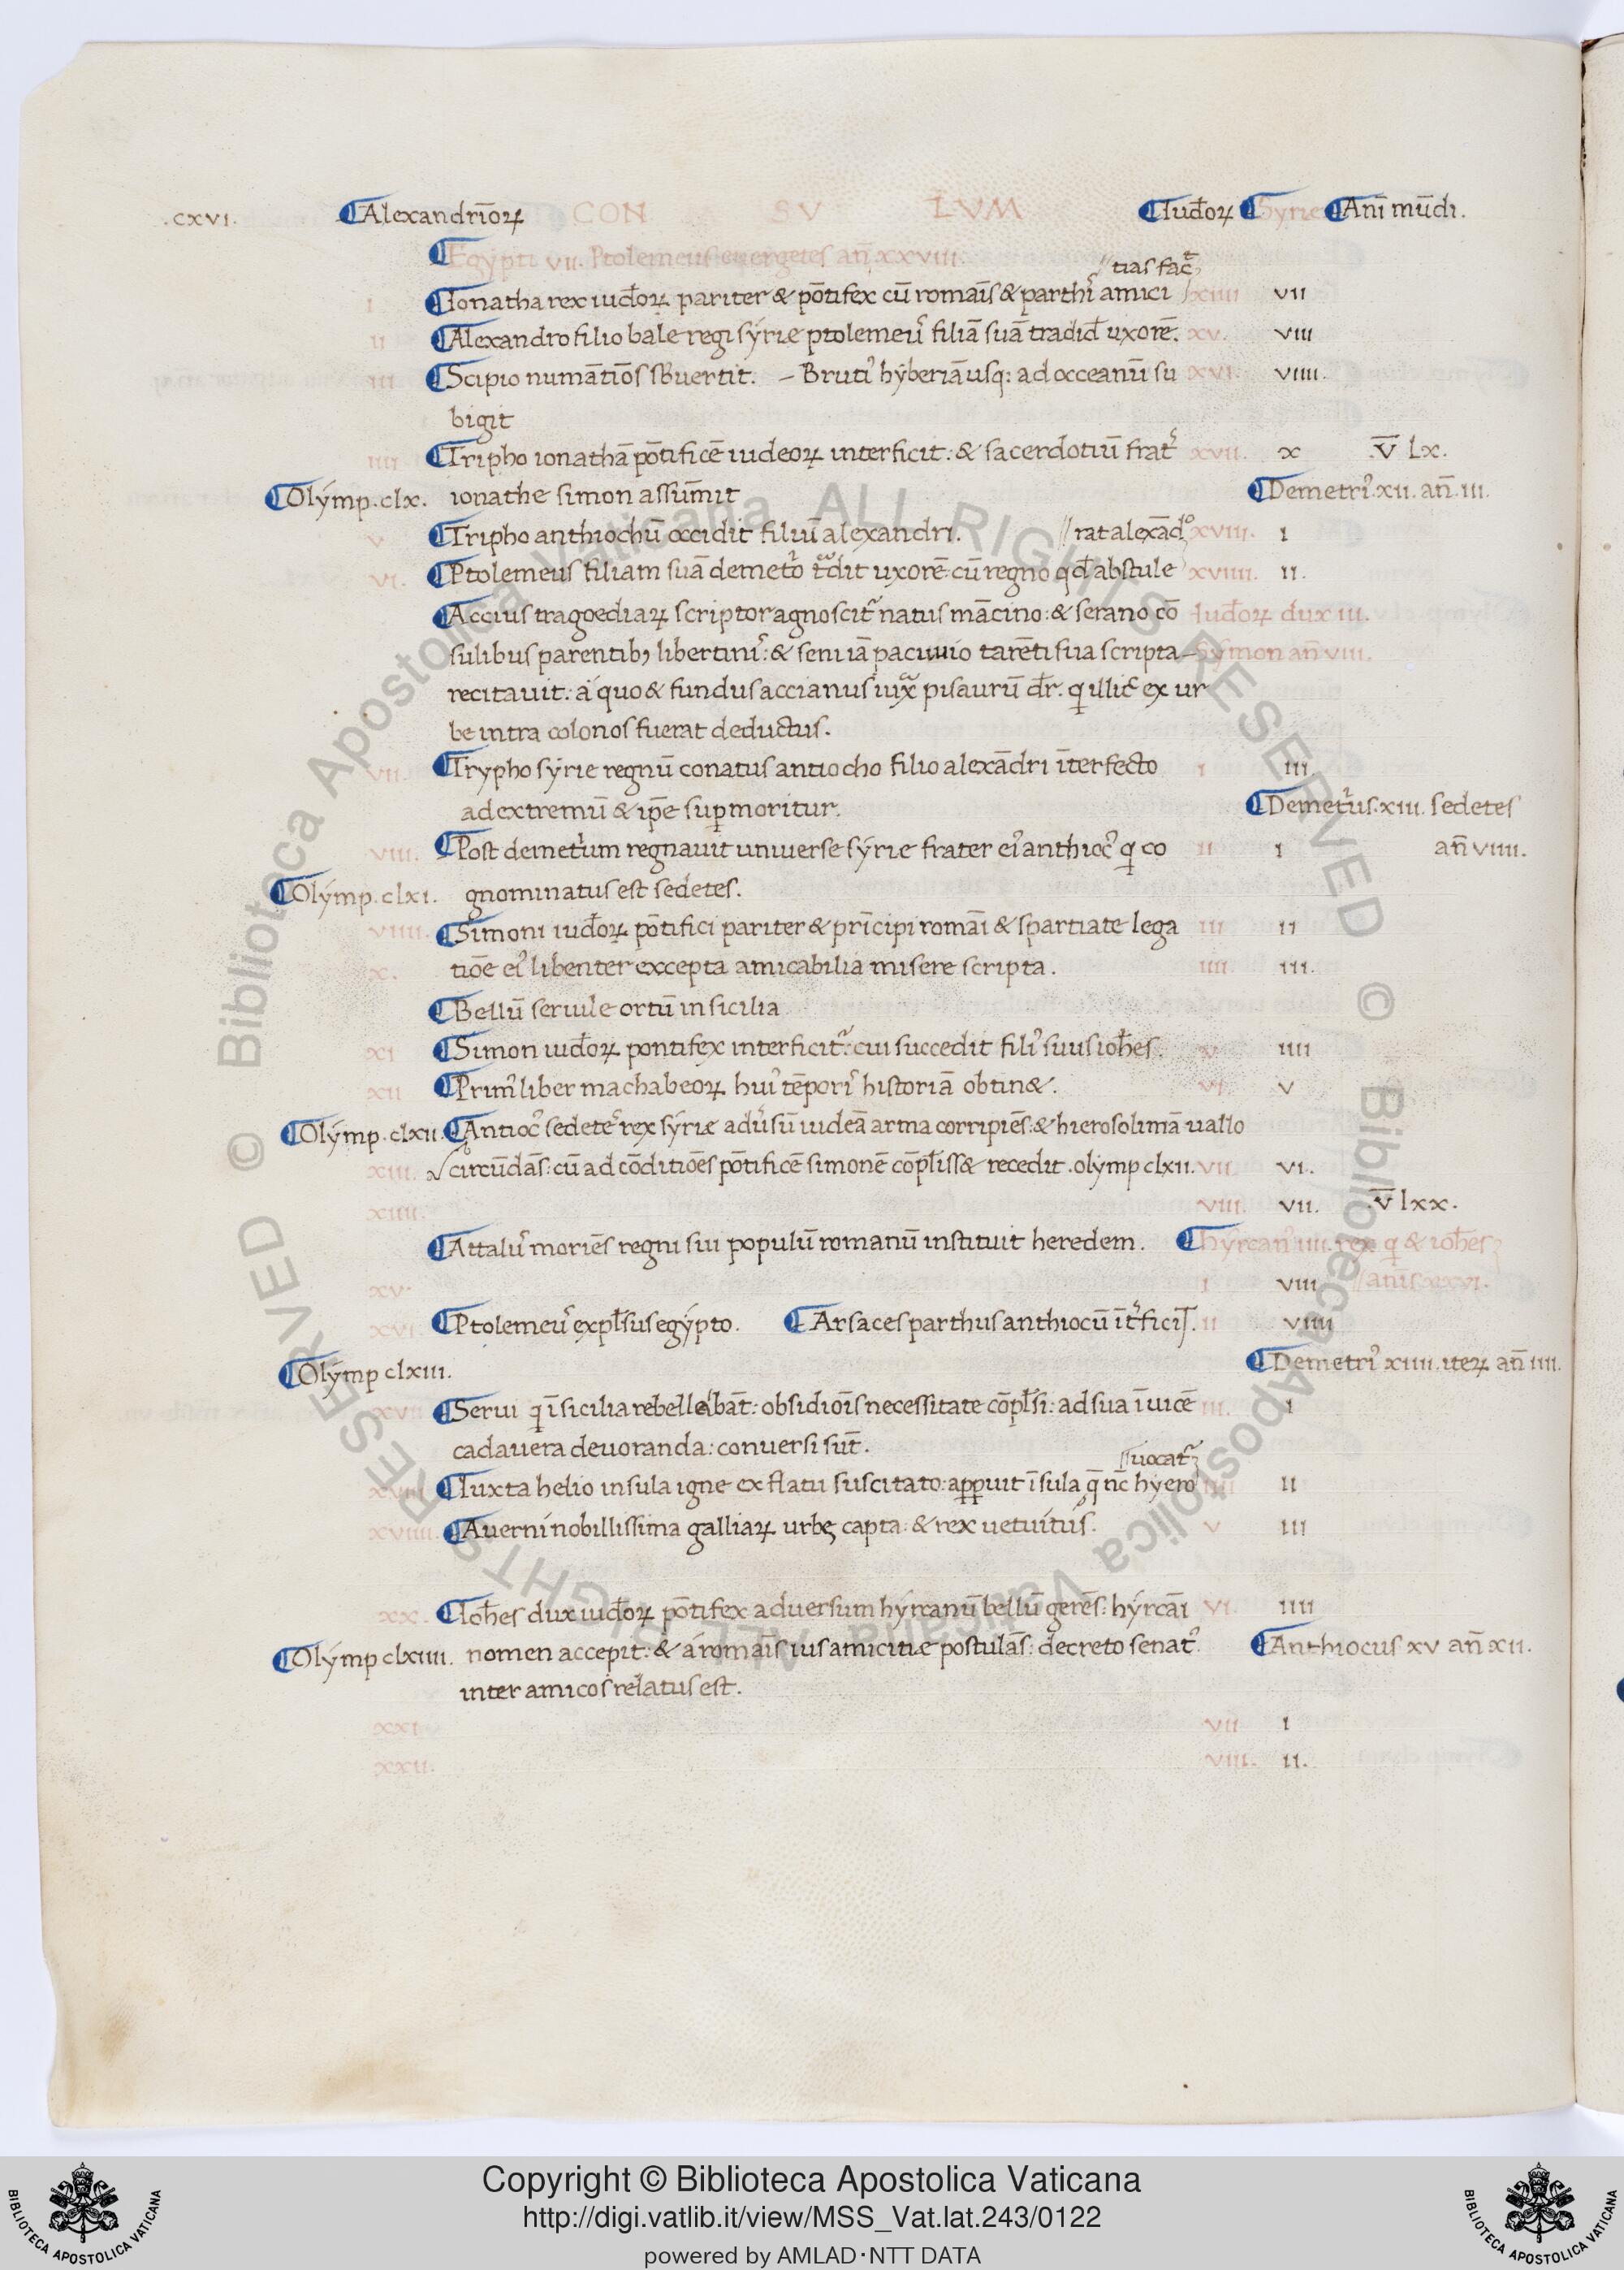 .cxvi. Alexandrīoꝝ CON SV LVM Iud̄oꝝ Syrie An̄i mūdi.
Egypti vii. Ptolemeus euergetes an̄ xxviii.
tias fac̄
i Ionatha rex iud̄oꝝ pariter & pōtifex cū romaīs & parthi᷒ amici xiiii vii
ii Alexandro filio bale regi sýrie ptolemeu᷒ filiā suā tradid̄ uxorē. xv. viii
iii Scipio numātīos sƀuertit. – Bruti᷒ hýberiā usq: ad occeanū su xvi. viiii.
bigit
iiii Tripho ionathā pōtificē iudeoꝝ interficit: & sacerdotiū frat᷒ xvii. x .v̄ lx.
Olýmp. clx. ionathe simon assūmit Demetri᷒. xii. an̄. iii.
v Tripho anthiochū occidit filiū alexandri. //rat alexād᷒o xviii. i
vi. Ptolemeus filiam suā demet᷒o t᷒adit uxorē: cū regno qd̄ abstule xviiii. ii.
Accius tragoediaꝝ scriptor agnoscit᷒ natus mācino: & serano cō Iud̄oꝝ dux iii.
sulibus parentib; libertini᷒: & seni iā pacuuio tarēti sua scripta – Sýmon an̄ viii.
recitauit: á quo & fundus accianus iuxᷓ pisaurū dr̄. q illic᷒ ex ur
be intra colonos fuerat deductus.
vii. Trypho sýrie regnū conatus antiocho filio alexādri īterfecto i iii.
ad extremū & ip̄e suꝑmoritur. Demet᷒us. xiii. sedetes
viii. Post demet᷒um regnauit uniuerse sýrie frater ei᷒ anthioc᷒ q co ii i an̄ viiii.
Olýmp. clxi. gnominatus est sedetes.
viiii. Simoni iud̄oꝝ pōtifici pariter & prīcipi romāi & spartiate lega iii ii
x. tiōe ei᷒ libenter excepta amicabilia misere scripta. iiii iii.
Bellū seruile ortū in sicilia
xi Simon iud̄oꝝ pontifex interficit᷒: cui succedit fili᷒ suus ioh̄es. v iiii
xii Prim᷒ liber machabeoꝝ hui᷒ tēpori᷒ historiā obtin&. vi v
Olýmp. clxii. Antioc᷒ sedete᷒ rex sýrie adu᷒sū iudeā arma corripiēs: & hierosolimā uallo
xiii. circūdās: cū ad cōditiōes pōtificē simonē cōpl̄iss& recedit. olymp clxii. vii vi.
xiiii. viii. vii. .v̄ lxx.
Attalu᷒ moriēs regni sui populū romanū instituit heredem. hýrcan᷒ iiii. rex q & ioh̄es
xv. i viii //an̄is xxvi.
xvi Ptolemeu᷒ expl̄sus egýpto. Arsaces parthus anthiocū īt᷒ficit. ii viiii
Olýmp clxiii. Demetri᷒ xiiii. iteꝝ an̄ iiii.
xvii Serui q ī sicilia rebellábāt: obsidiōis necessitate cōpl̄si: ad sua īuicē iii. i
cadauera deuoranda: conuersi sūt. //uocat᷒
xviii Iuxta helio insula igne ex flatu suscitato: apꝑuit īsula q̄ nc̄ hyero iiii ii
xviiii. Auerni nobillissima galliaꝝ urbs capta: & rex uetuitus. v iii
xx. Ioh̄es dux iud̄oꝝ pōtifex aduersum hýrcanū bellū gerēs: hýrcāi vi iiii
Olýmp clxiiii. nomen accepit: & á romaīs ius amicitiæ postulās: decreto senat᷒ Anthiocus xv an̄ xii.
inter amicos relatus est.
xxi vii i
xxii. viii. ii.
Copyright © Biblioteca Apostolica Vaticana
http://digi.vatlib.it/view/MSS_Vat.lat.243/0122
powered by AMLAD·NTT DATA
BIBLIOTECA APOSTOLICA VATICANA
BIBLIOTECA APOSTOLICA VATICANA
© Biblioteca Apostolica Vaticana ALL RIGHTS RESERVED © Biblioteca Apostolica Vaticana ALL RIGHTS RESERVED